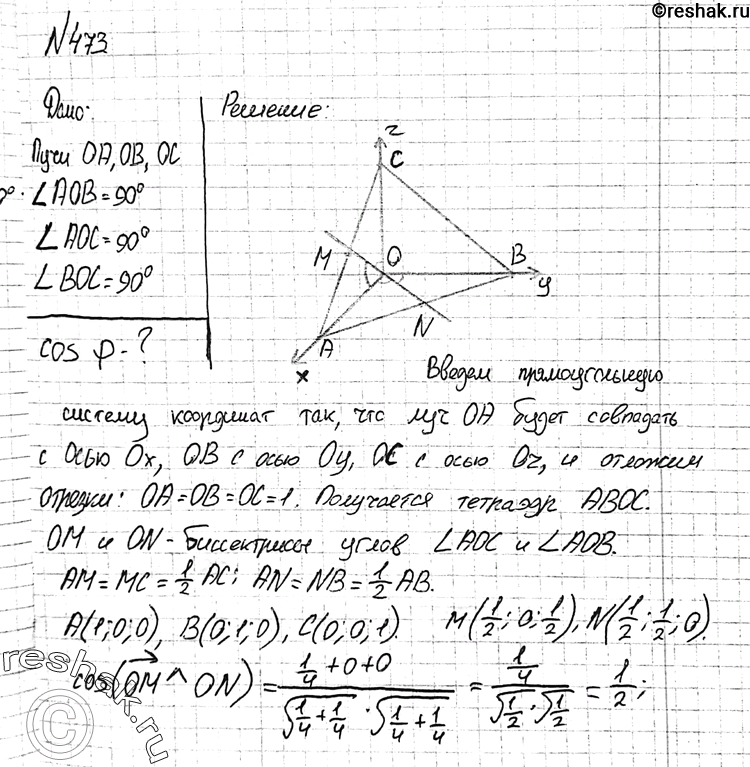 ©reshak.ru
N473
Дано:
Решение:
Лучи OA, OB, OC
∠AOB=90°
∠AOC=90°
∠BOC=90°
cos φ-?
z
C
M
O
B
y
N
A
x
Введем прямоугольную
систему координат так, что луч OA будет совпадать
с осью Ox, OB с осью Oy, OC с осью Oz, и отложим
отрезки: OA=OB=OC=1. Получается тетраэдр ABOC.
OM и ON-биссектрисы углов ∠AOC и ∠AOB.
AM=MC=1/2 AC; AN=NB=1/2 AB.
A(1;0;0), B(0;1;0), C(0;0;1). M(1/2;0;1/2), N(1/2;1/2;0).
cos(OM^ON) = (1/4+0+0)/(√(1/4+1/4)·√(1/4+1/4)) = (1/4)/(√(1/2)·√(1/2)) = 1/2;
reshak.ru
©